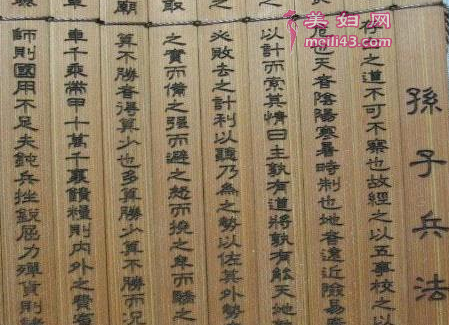 美妇网
meili43.com
孫子兵法
存亡之道不可不察也故經之以五事校之以
危也天者陰陽寒暑時制也地者遠近險易
以計而索其情曰主孰有道將孰有能天地
必敗去之計利以聽乃為之勢以佐其外勢
取
之實而備之强而避之怒而撓之卑而驕之
廟
算不勝者得算少也多算勝少算不勝而況
車千乘帶甲十萬千裏饋糧則内外之費
師則國用不足夫鈍兵挫銳屈力殫貨則諸